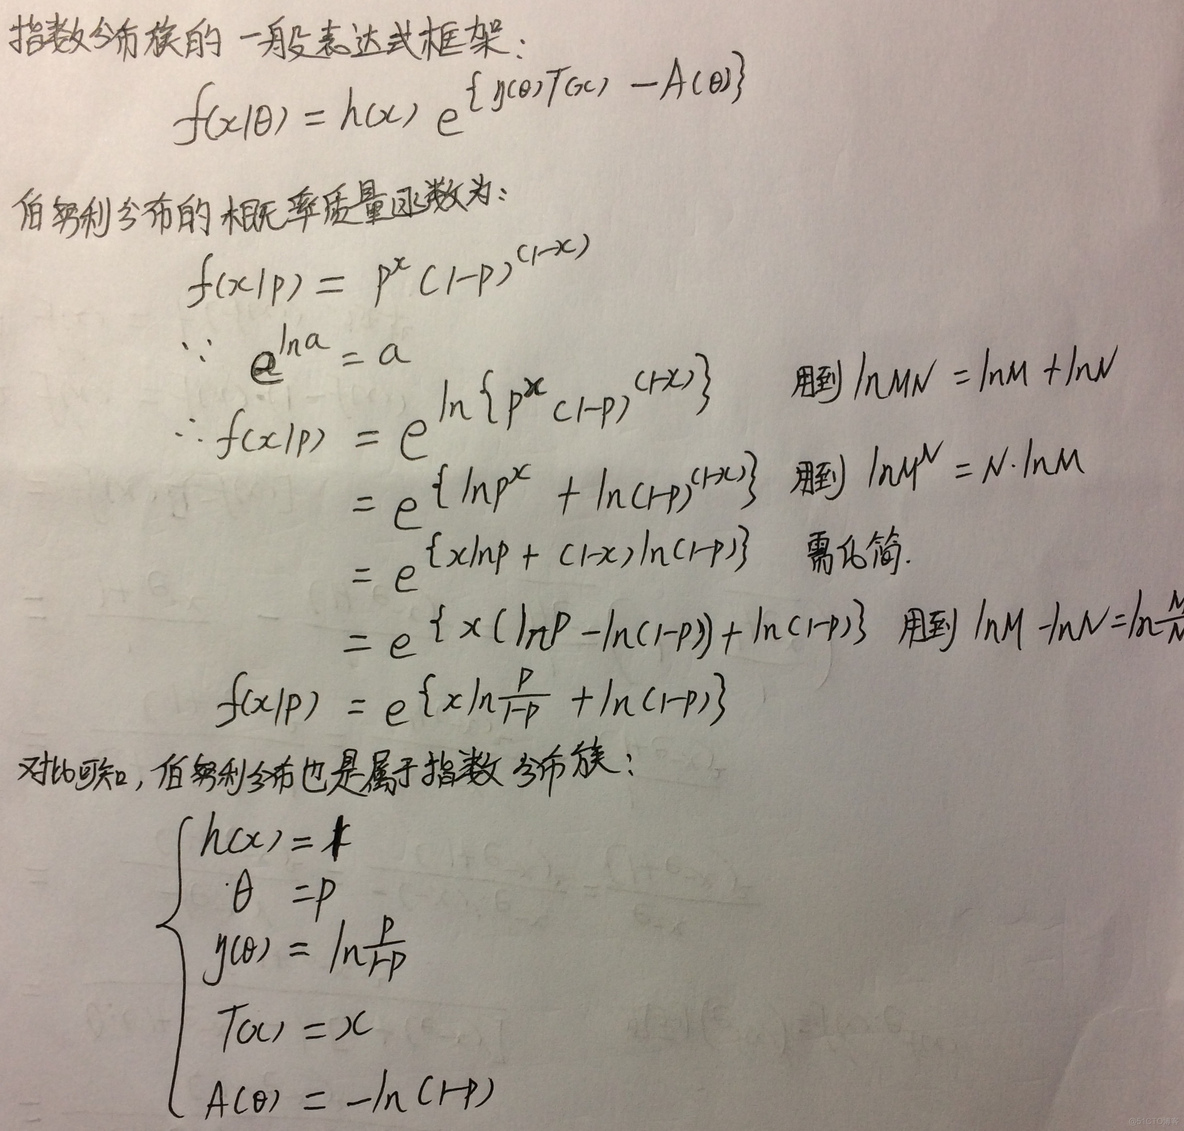 指数分布族的一般表达式框架：
f(x|θ) = h(x) e^{η(θ)T(x) - A(θ)}
伯努利分布的概率质量函数为：
f(x|p) = p^x (1-p)^(1-x)
∵ e^lna = a
用到 lnMN = lnM + lnN
∴ f(x|p) = e^ln{p^x (1-p)^(1-x)}
= e^{lnp^x + ln(1-p)^(1-x)} 用到 lnM^N = N·lnM
= e^{xlnp + (1-x)ln(1-p)} 需化简.
= e^{x(lnp - ln(1-p)) + ln(1-p)} 用到 lnM - lnN = ln M/N
f(x|p) = e^{x ln p/(1-p) + ln(1-p)}
对比可知，伯努利分布也是属于指数分布族：
h(x) = 1
θ = p
η(θ) = ln p/(1-p)
T(x) = x
A(θ) = -ln(1-p)
@51CTO博客